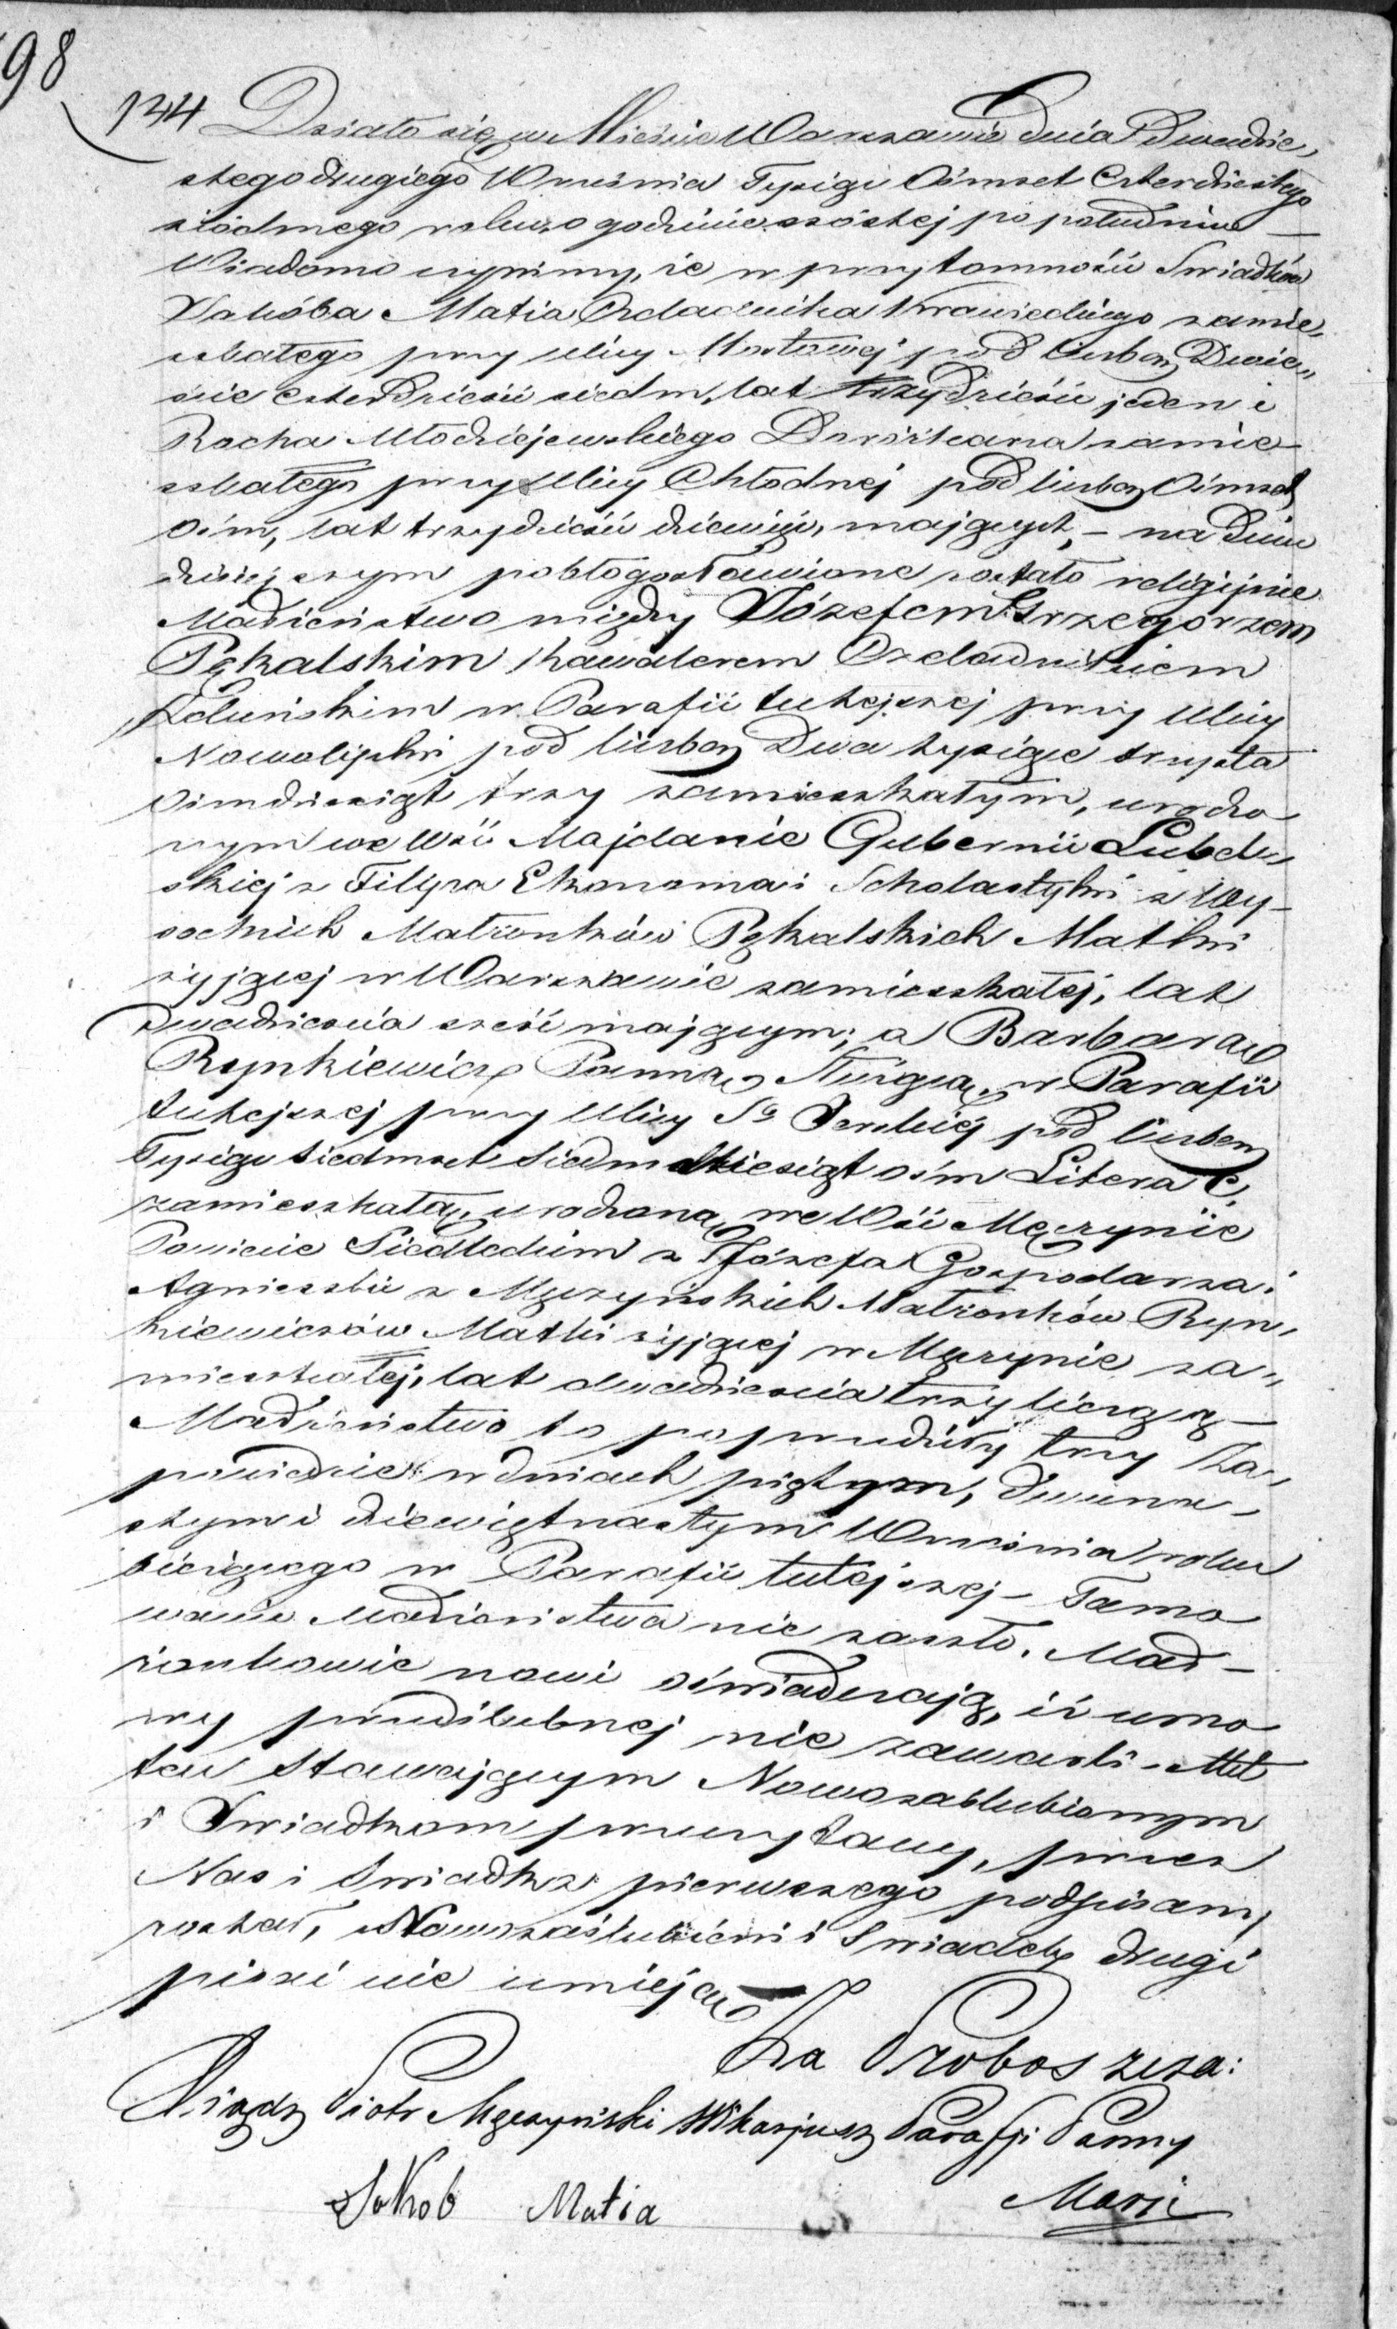 98
144 Działo się w Mieście Warszawie dnia Dwudzie,
stego drugiego Września Tysiąc Ośmset Czterdziestego
siódmego roku, o godzinie szóstej po południu —
Wiadomo czynimy, że w przytomności Świadków
Jakóba Matia Czeladnika Krawieckiego zamie,
szkałego przy Ulicy Mostowej pod liczbą Dwie„
ście czterdzieści siedm, lat trzydzieści jeden i
Rocha Młodziejewskiego Dorożkarza zamie—
szkałego przy Ulicy Chłodnej pod liczbą Ośmset
Ośm, lat trzydzieści dziewięć, mających, — na dniu
dzisiejszym pobłogosławione zostało religijnie
Małżeństwo między Józefem Grzegorzem
Pękalskim Kawalerem Czeladnikiem
w Parafii tutejszej przy Ulicy
Nowolipki pod liczbą Dwa tysiące trzysta
ośmdziesiąt trzy zamieszkałym, urodzo—
nym we Wsi Majdanie Gubernii Lubel„
skiej z Filipa Ekonoma i Scholastyki z Wy—
sockich Małżonków Pękalskich Matki
żyjącej w Warszawie zamieszkałej, lat
dwadzieścia sześć mającym; a Barbarą
Rynkiewicz Panną, Służącą, w Parafii
tutejszej przy Ulicy Sto Jerskiéj pod liczbą
Tysiąc Siedmset Siedmdziesiąt ośm Litera C,
zamieszkałą, urodzoną we Wsi Męczynie
Powiecie Siedleckim z Józefa Gospodarza i
Agnieszki z Męczyńskich Małżonków Ryn,
kiewiczów Matki żyjącej w Męczynie za„
mieszkałej, lat dwadzieścia trzy liczącą —
Małżeństwo to poprzedziły trzy Za„
powiedzie w dniach piątym, dwuna„
stym i dziewiętnastym Września roku
bieżącego w Parafii tutejszej — Tamo
wanie Małżeństwa nie zaszło. Mał—
żonkowie nowi oświadczają, iż umo
wy przedślubnej nie zawarli. Akt
ten Stawającym Nowozaślubionym
i Świadkom przeczytany, przez
Nas i Świadka pierwszego podpisany
został, Nowozaślubieni i Świadek drugi
pisać nie umieją
Za Proboszcza:
Xiądz Piotr Męczyński Wikarjusz Parafji Panny
Marji
Jakob Matia